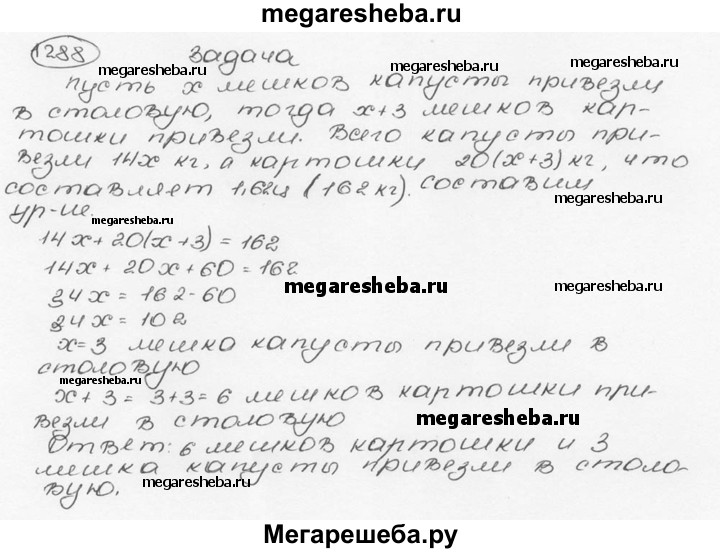 megaresheba.ru
1288 задача
megaresheba.ru megaresheba.ru
пусть x мешков капусты привезли
в столовую, тогда x+3 мешков кар-
megaresheba.ru megaresheba.ru
тошки привезли. Всего капусты при-
везли 14x кг, а картошки 20(x+3) кг, что
составляет 1,62ц (162 кг). составим
megaresheba.ru
ур-ие.
megaresheba.ru
14x+20(x+3)=162
14x+20x+60=162
megaresheba.ru megaresheba.ru
34x=162-60
34x=102
x=3 мешка капусты привезли в
столовую
megaresheba.ru
x+3=3+3=6 мешков картошки при-
везли в столовую
megaresheba.ru
Ответ: 6 мешков картошки и 3
мешка капусты привезли в столо-
megaresheba.ru megaresheba.ru
вую.
Мегарешеба.ру